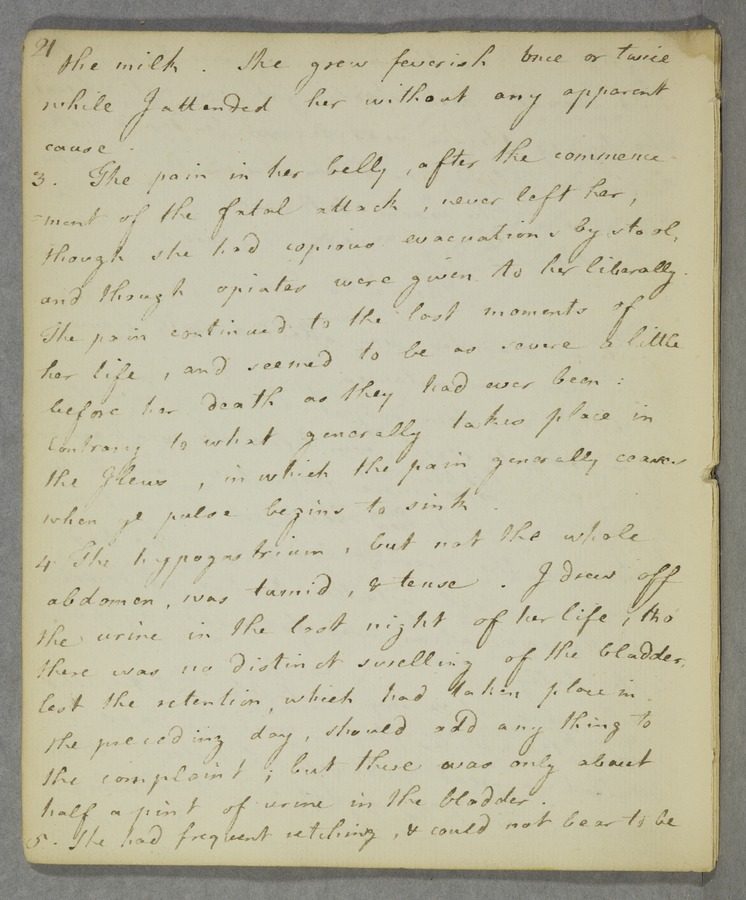 21
the milk . She grew feverish once or twice
while I attended her without any apparent
cause .
3. The pain in her belly , after the commence-
=ment of the fatal attack , never left her,
though she had copious evacuations by stool,
and though opiates were given to her liberally.
The pain continued to the last moments of
her life , and seemed to be as severe a little
before her death as they had ever been :
Contrary to what generally takes place in
the Ileus , in which the pain generally ceases
when ye pulse begins to sink .
4 The hypogastrium , but not the whole
abdomen, was tumid , & tense . I drew off
the urine in the last night of her life , tho'
there was no distinct swelling of the bladder,
lest the retention, which had taken place in
the preceding day, should add any thing to
the complaint ; but there was only about
half a pint of urine in the bladder .
5. She had frequent retching , & could not bear to be